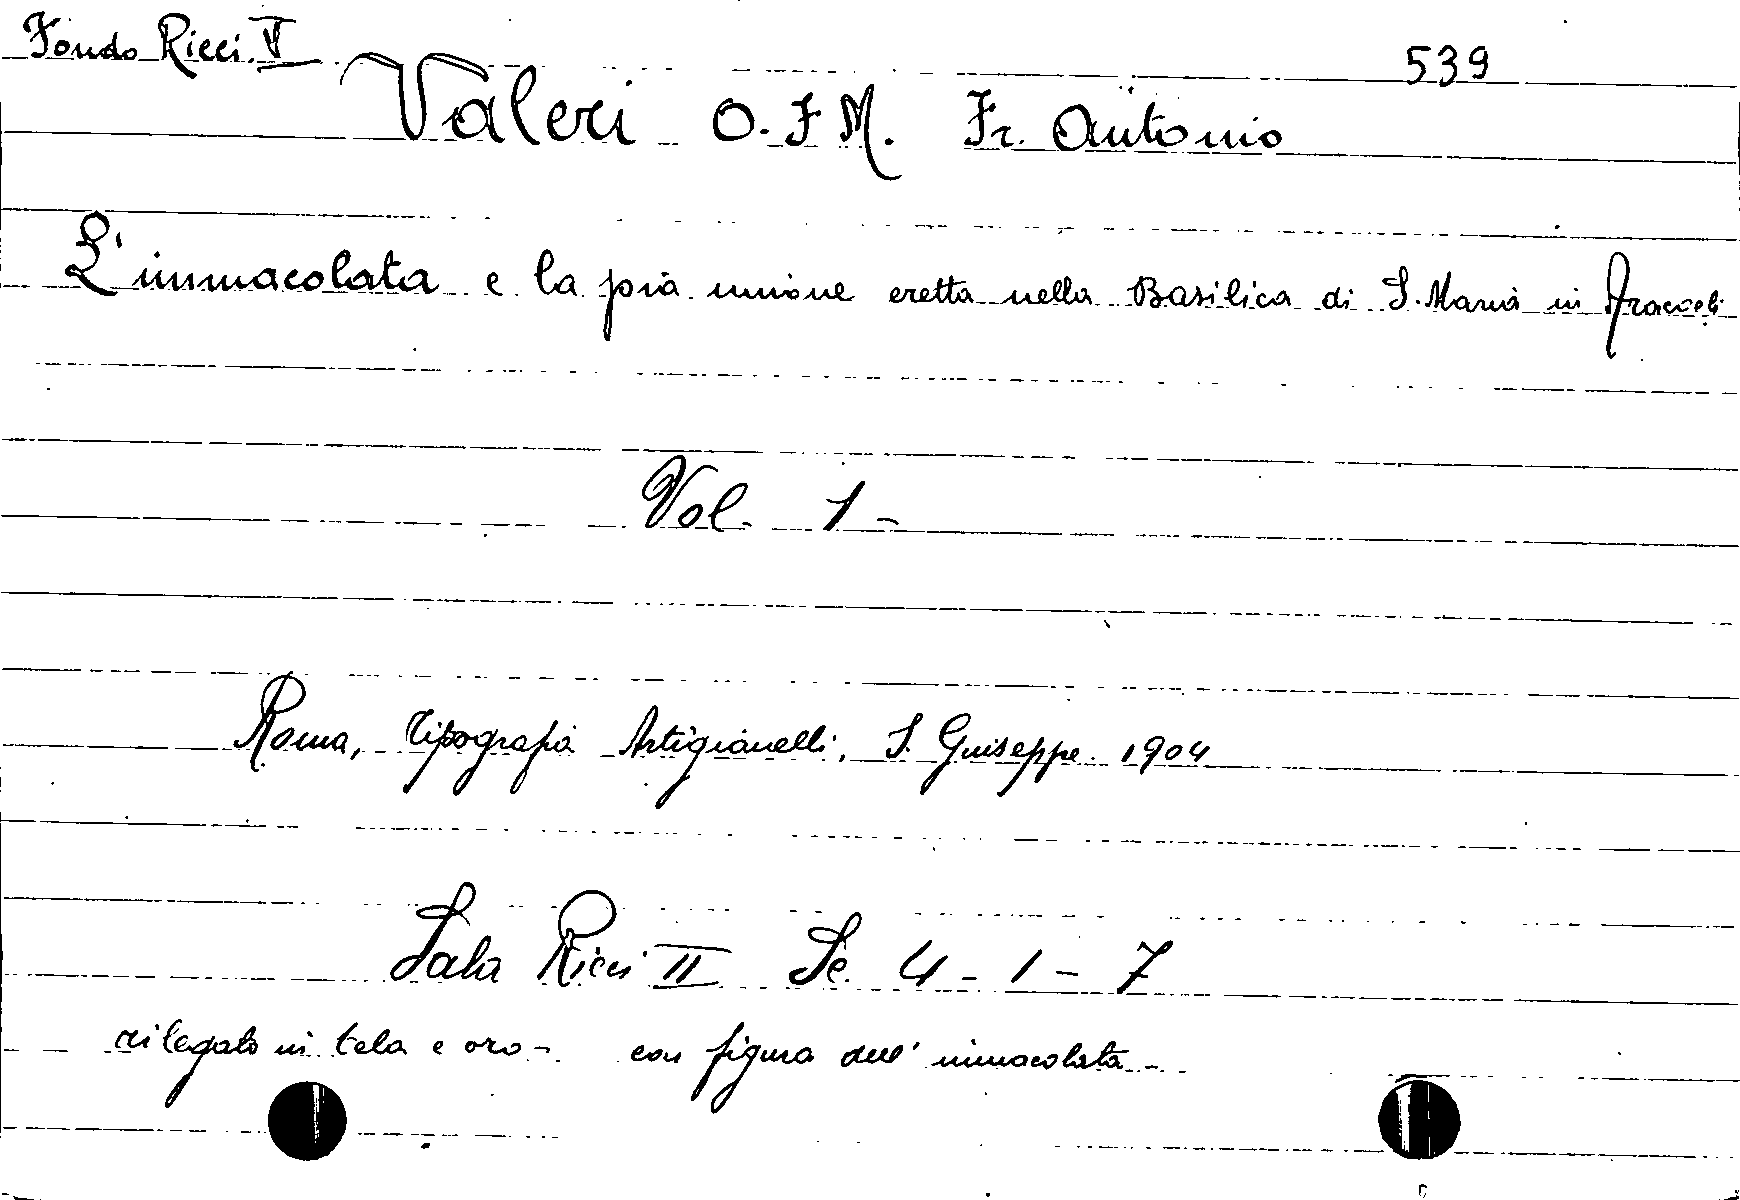 Fondo Ricci V
539
Valeri O.F.M. Fr. Antonio
L'immacolata e la pia unione eretta nella Basilica di S. Maria in Aracoeli
Vol. 1 -
Roma, Tipografia Artigianelli, S. Giuseppe. 1904
Sala Ricci II Sc. 4 - 1 - 7
rilegato in tela e oro - con figura dell'immacolata -